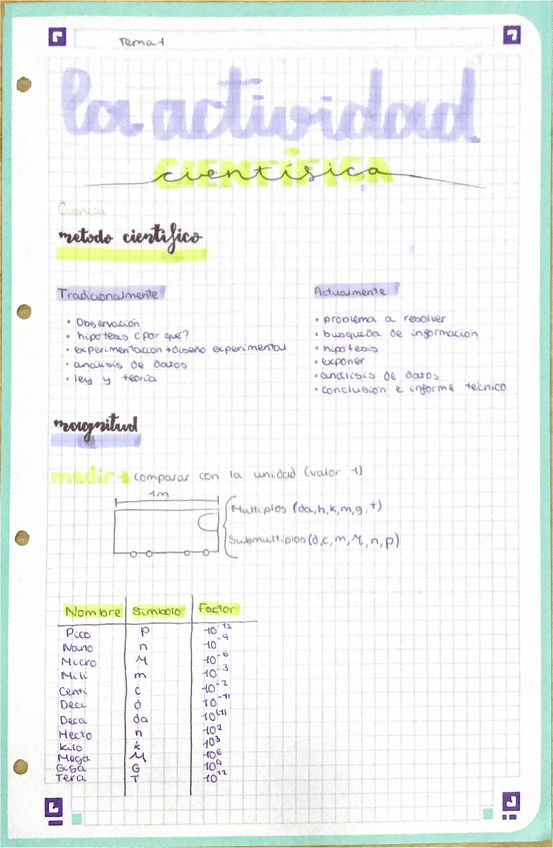 Tema 1
la actividad
CIENTÍFICA
científica
Ciencia
metodo cientifico
Tradicionalmente
• Observación
• hipotesis ¿por qué?
• experimentacion → diseño experimental
• analisis de datos
• ley y teoria
Actualmente
• problema a resolver
• busqueda de informacion
• hipotesis
• exponer
• analisis de datos
• conclusión e informe técnico
magnitud
medir → comparar con la unidad (valor 1)
1m
Multiplos (da, h, k, m, g, t)
Submultiplos (d, c, m, M, n, p)
Nombre Simbolo Factor
Pico p 10⁻¹²
Nano n 10⁻⁹
Micro M 10⁻⁶
Mili m 10⁻³
Centi c 10⁻²
Deci d 10⁻¹
Deca da 10
Hecto h 10²
Kilo k 10³
Mega M 10⁶
Giga G 10⁹
Tera T 10¹²